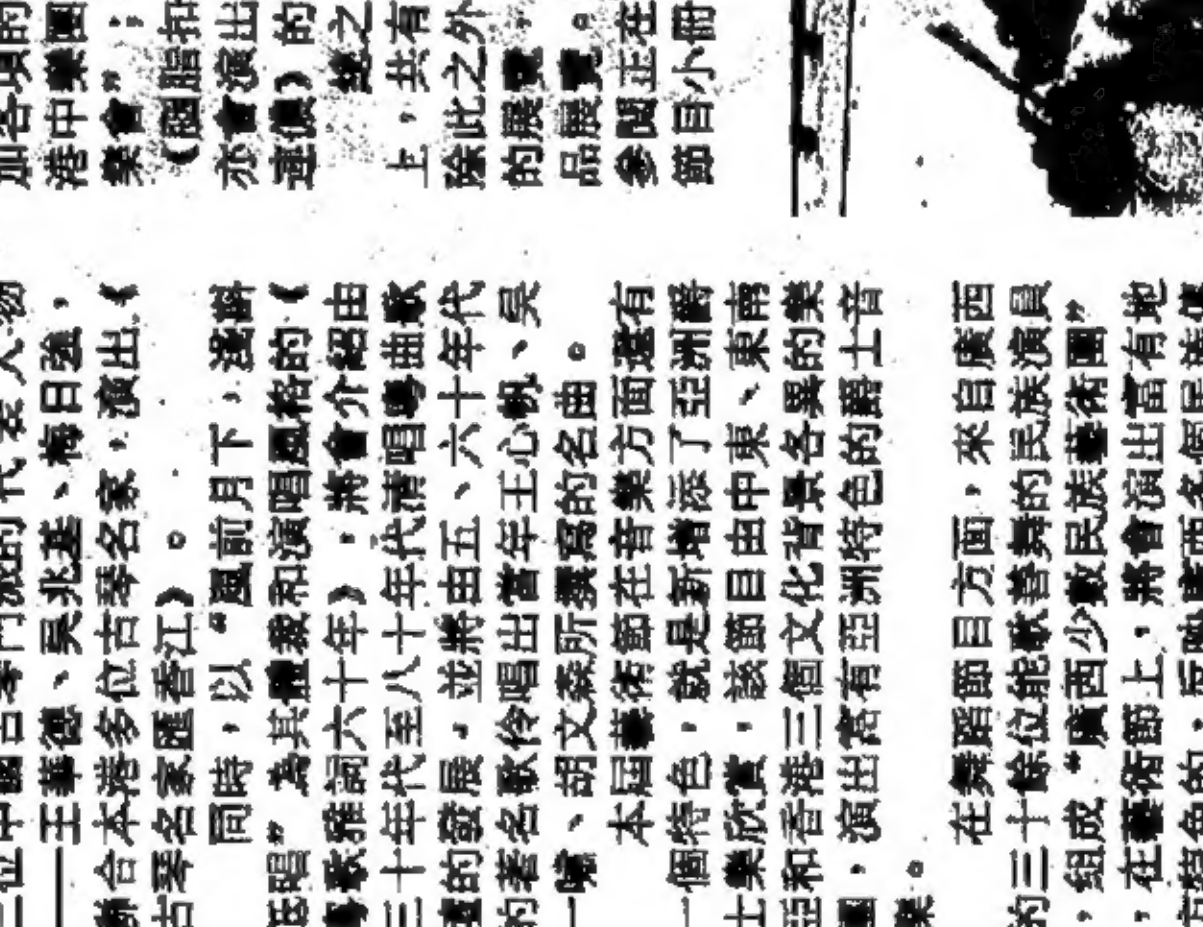 三位中國古琴門派的代表人物
——王華德、吳兆基、梅日強，
聯合本港多位古琴名家，演出《
古琴名家匯香江》。
同時，以“前月下，淺斟
低唱”為其體裁和演唱風格的《
粵歌雅詞六十年》，將會介紹由
三十年代至八十年代唱粵曲歌
壇的發展，並將由五、六十年代
的著名歌伶唱出當年王心帆、吳
一嘯、胡文森所撰寫的名曲。
本屆藝術節在音樂方面還有
一個特色，就是新增添了亞洲爵
士樂欣賞，該節目由中東、東南
亞和香港三個文化背景各異的樂
團，演出富有亞洲特色的爵士音
樂。
在舞蹈節目方面，來自廣西
的三十餘位能歌善舞的民族演員
，組成“廣西少數民族藝術團”
，在藝術節上，將會演出富有地
方特色的，反映廣西各個民族
加各項的
港中樂團
樂會”，
《胭脂扣
亦會演出
的
之
上，共有
除此之外
的展覽
品展覽。
參閱正在
節目小冊